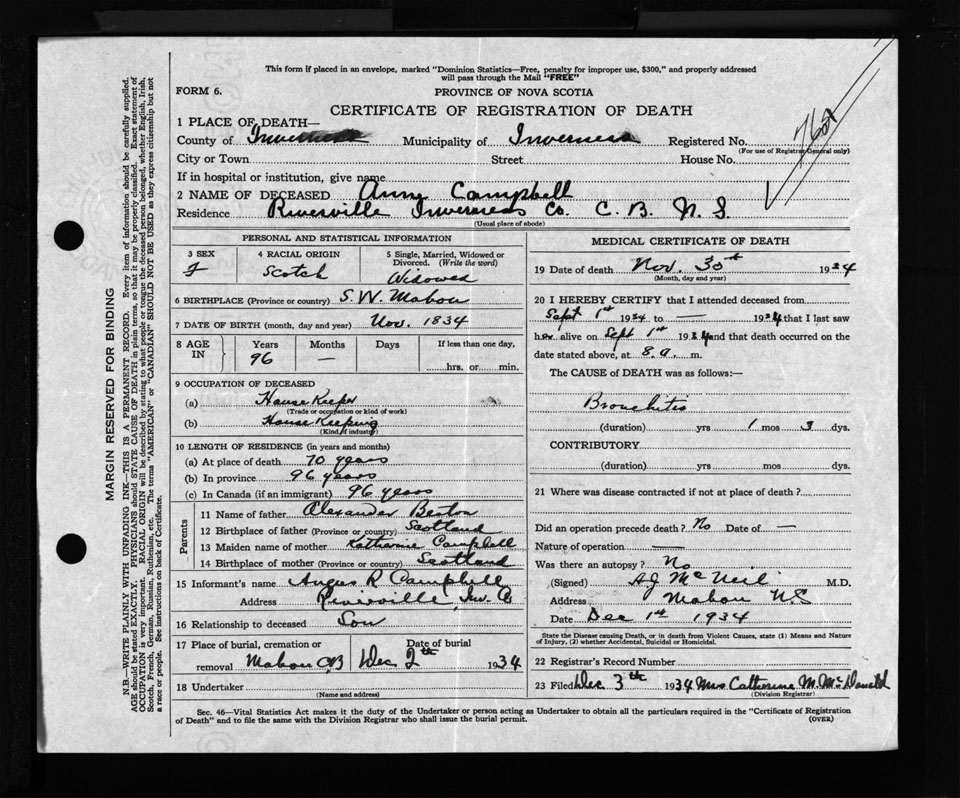 This form if placed in an envelope, marked "Dominion Statistics—Free, penalty for improper use, $300," and properly addressed
will pass through the Mail "FREE"
FORM 6.
PROVINCE OF NOVA SCOTIA
CERTIFICATE OF REGISTRATION OF DEATH
1 PLACE OF DEATH—
County of Inverness Municipality of Inverness Registered No.
(For use of Registrar General only)
City or Town Street House No.
If in hospital or institution, give name
2 NAME OF DECEASED Anne Campbell
Residence Riverville Inverness Co. C. B. N. S.
(Usual place of abode)
PERSONAL AND STATISTICAL INFORMATION
3 SEX
F
4 RACIAL ORIGIN
Scotch
5 Single, Married, Widowed or
Divorced. (Write the word)
Widowed
6 BIRTHPLACE (Province or country) S. W. Mabou
7 DATE OF BIRTH (month, day and year) Nov. 1834
8 AGE IN
Years
96
Months
—
Days
If less than one day,
hrs. or min.
9 OCCUPATION OF DECEASED
(a) House Keeper
(Trade or occupation or kind of work)
(b) House Keeping
(Kind of industry)
10 LENGTH OF RESIDENCE (in years and months)
(a) At place of death 70 years
(b) In province 96 years
(c) In Canada (if an immigrant) 96 years
Parents
11 Name of father Alexander Beaton
12 Birthplace of father (Province or country) Scotland
13 Maiden name of mother Katharine Campbell
14 Birthplace of mother (Province or country) Scotland
15 Informant's name Angus R Campbell
Address Riverville, Inv. Co
16 Relationship to deceased Son
17 Place of burial, cremation or
removal Mabou CB
Date of burial
Dec 2th 1934
18 Undertaker
(Name and address)
MEDICAL CERTIFICATE OF DEATH
19 Date of death Nov. 30th 1934
(Month, day and year)
20 I HEREBY CERTIFY that I attended deceased from
Sept 1st 1934 to — 1934 that I last saw
her alive on Sept 1st 1934 and that death occurred on the
date stated above, at 8. a. m.
The CAUSE of DEATH was as follows:—
Bronchitis
(duration) yrs 1 mos 3 dys.
CONTRIBUTORY
(duration) yrs mos dys.
21 Where was disease contracted if not at place of death?
Did an operation precede death? No Date of —
Nature of operation —
Was there an autopsy? No
(Signed) A J McNeil M.D.
Address Mabou N.S
Date Dec 1st 1934
State the Disease causing Death, or in death from Violent Causes, state (1) Means and Nature
of Injury, (2) whether Accidental, Suicidal or Homicidal.
22 Registrar's Record Number
23 Filed Dec 3th 1934 Mrs Catherine M. McDonald
(Division Registrar)
Sec. 46—Vital Statistics Act makes it the duty of the Undertaker or person acting as Undertaker to obtain all the particulars required in the "Certificate of Registration
of Death" and to file the same with the Division Registrar who shall issue the burial permit.
(OVER)
MARGIN RESERVED FOR BINDING
N.B.—WRITE PLAINLY WITH UNFADING INK—THIS IS A PERMANENT RECORD. Every item of information should be carefully supplied.
AGE should be stated EXACTLY. PHYSICIANS should STATE CAUSE OF DEATH in plain terms, so that it may be properly classified. Exact statement of
OCCUPATION is very important. RACIAL ORIGIN will be described by stating to what people or tongue the deceased person belonged, whether English, Irish,
Scotch, French, German, Russian, Ruthenian, etc. The terms "AMERICAN" or "CANADIAN" SHOULD NOT BE USED as they express citizenship but not
a race or people. See instructions on back of Certificate.